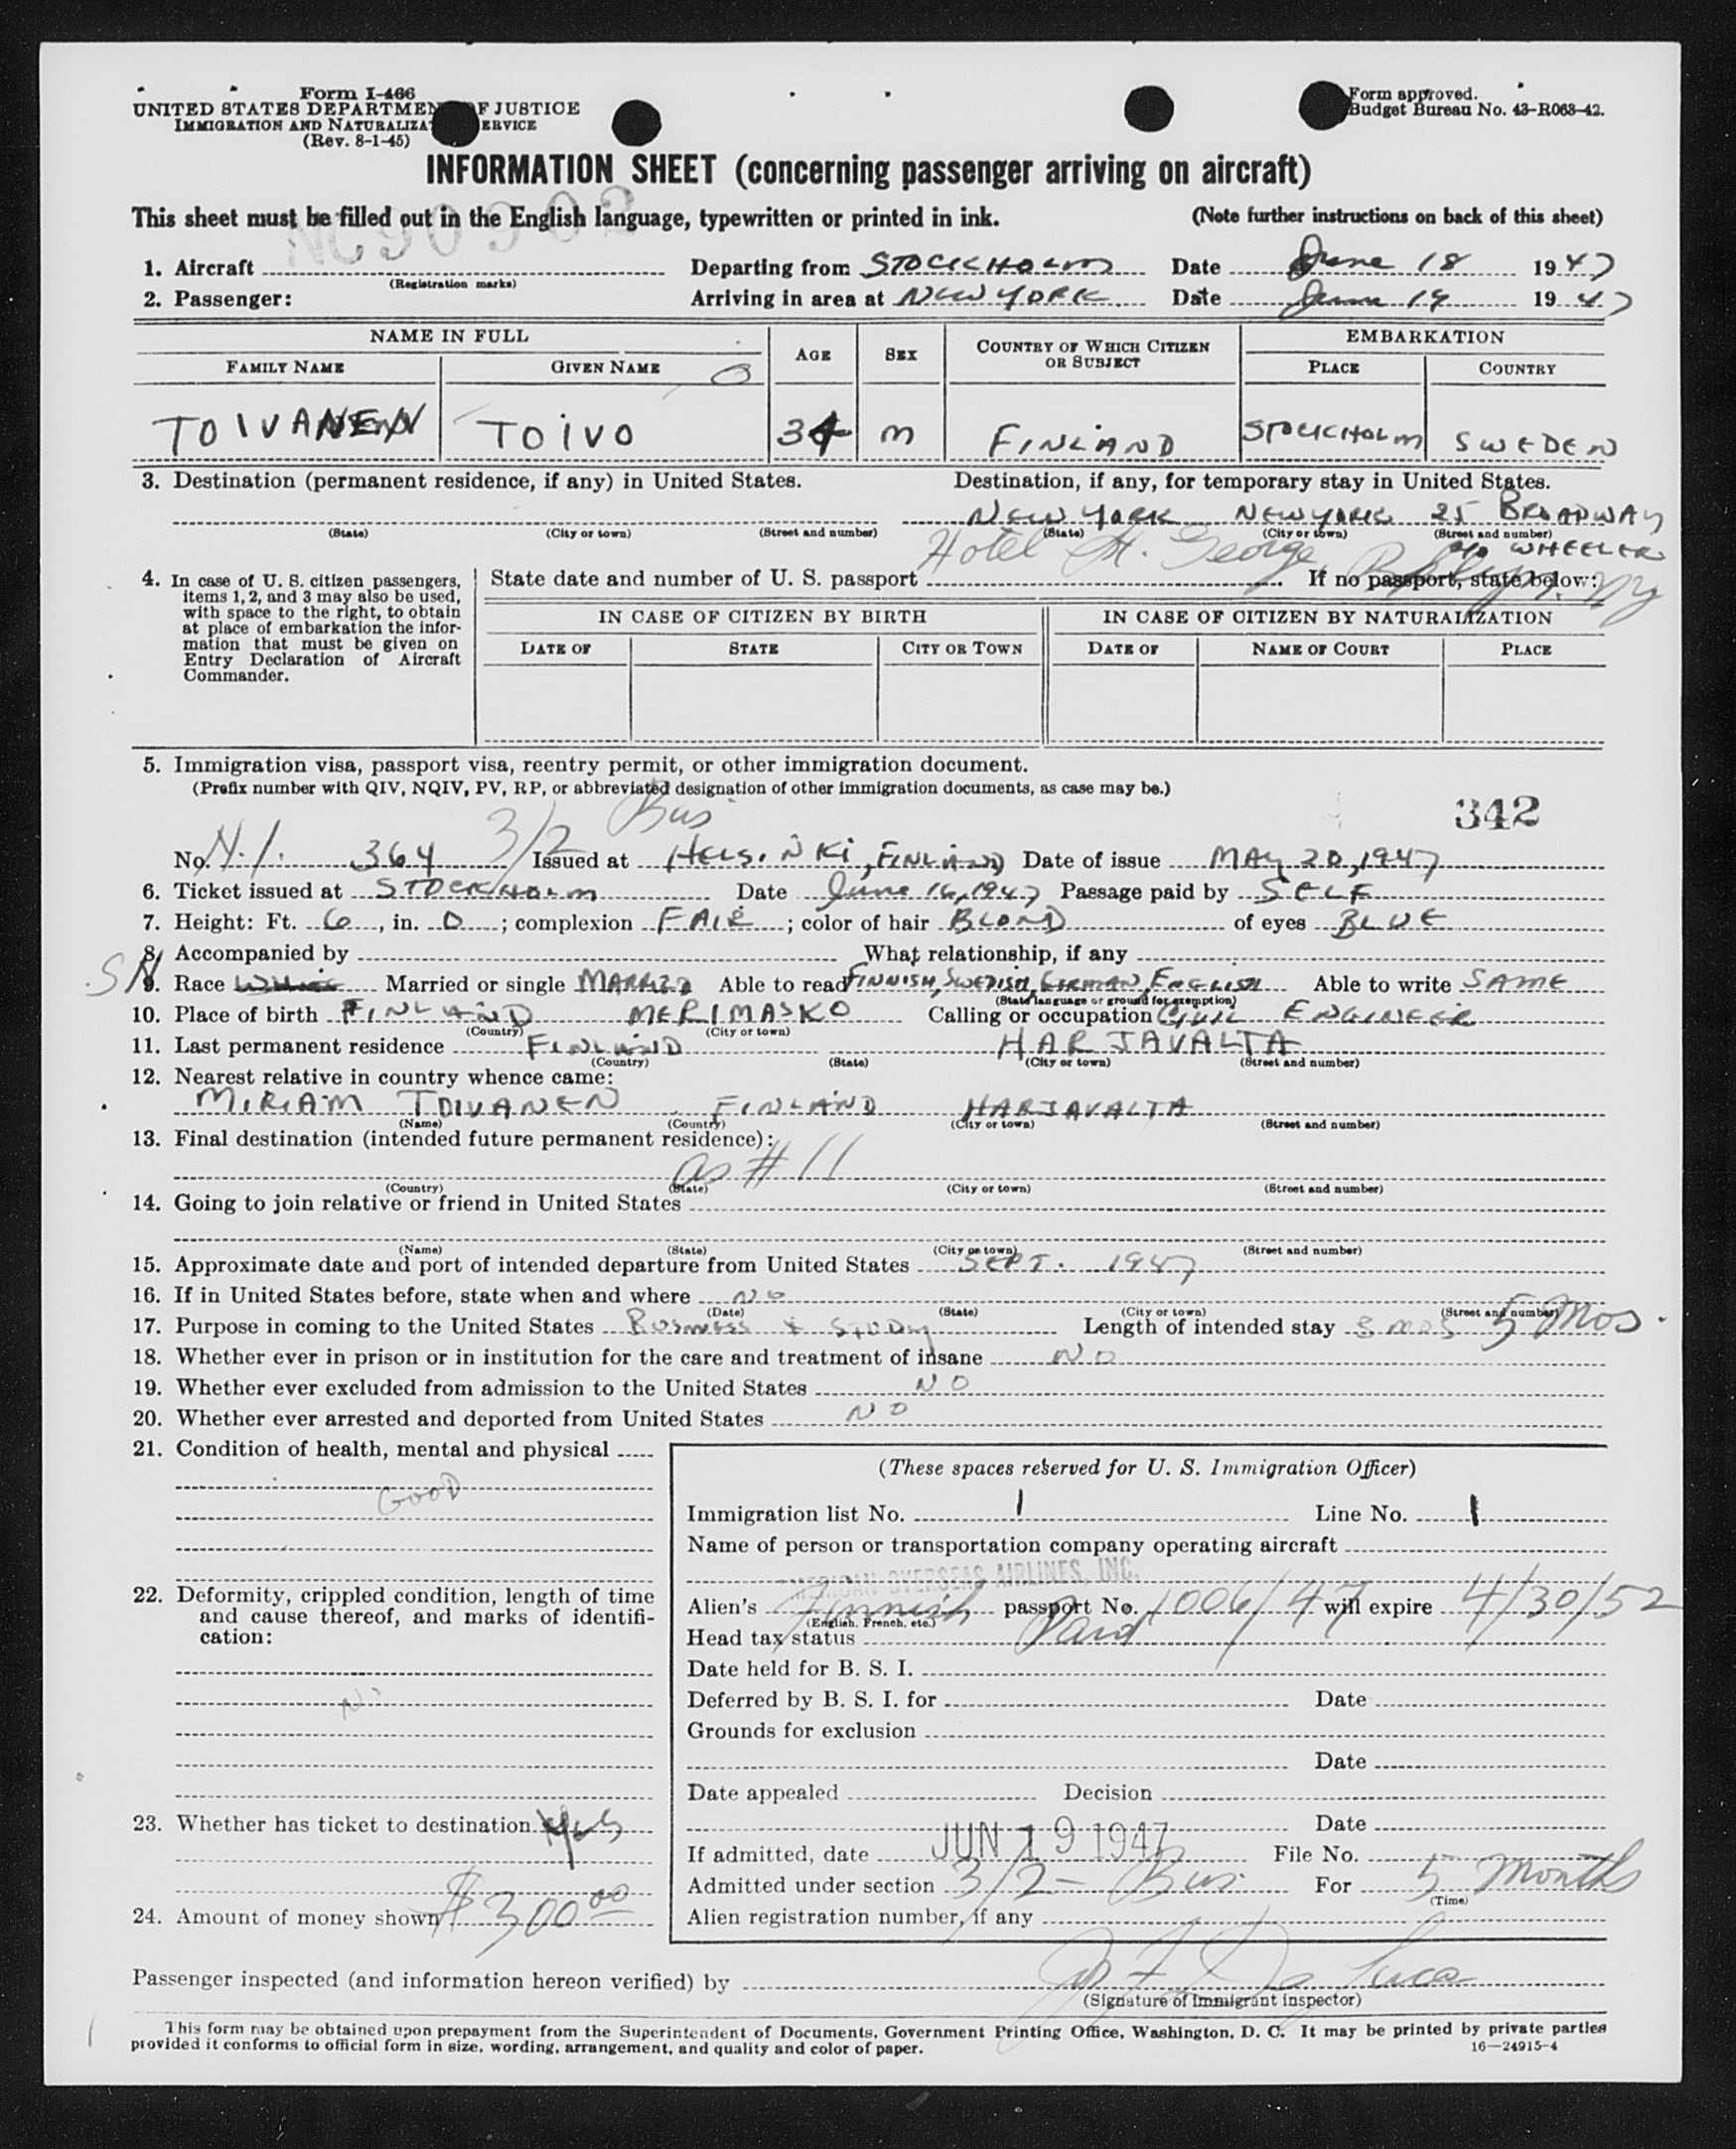 Form I-466
UNITED STATES DEPARTMENT OF JUSTICE
IMMIGRATION AND NATURALIZATION SERVICE
(Rev. 8-1-45)
Form approved.
Budget Bureau No. 43-R063-42.
INFORMATION SHEET (concerning passenger arriving on aircraft)
This sheet must be filled out in the English language, typewritten or printed in ink. (Note further instructions on back of this sheet)
NC90902
1. Aircraft (Registration marks) Departing from STOCKHOLM Date June 18 1947
2. Passenger: Arriving in area at NEW YORK Date June 19 1947
NAME IN FULL AGE SEX COUNTRY OF WHICH CITIZEN OR SUBJECT EMBARKATION
FAMILY NAME GIVEN NAME PLACE COUNTRY
TOIVANEN TOIVO 34 M FINLAND STOCKHOLM SWEDEN
3. Destination (permanent residence, if any) in United States. Destination, if any, for temporary stay in United States.
NEW YORK NEW YORK 25 BROADWAY
(State) (City or town) (Street and number) (State) (City or town) (Street and number)
c/o WHEELER
Hotel St. George, Bklyn. NY
4. In case of U. S. citizen passengers, items 1, 2, and 3 may also be used, with space to the right, to obtain at place of embarkation the information that must be given on Entry Declaration of Aircraft Commander.
State date and number of U. S. passport If no passport, state below:
IN CASE OF CITIZEN BY BIRTH IN CASE OF CITIZEN BY NATURALIZATION
DATE OF STATE CITY OR TOWN DATE OF NAME OF COURT PLACE
5. Immigration visa, passport visa, reentry permit, or other immigration document.
(Prefix number with QIV, NQIV, PV, RP, or abbreviated designation of other immigration documents, as case may be.)
342
3/2 Bus
No. N.I. 364 Issued at HELSINKI, FINLAND Date of issue MAY 20, 1947
6. Ticket issued at STOCKHOLM Date June 16, 1947 Passage paid by SELF
7. Height: Ft. 6, in. 0; complexion FAIR; color of hair BLOND of eyes BLUE
8. Accompanied by What relationship, if any
9. Race Married or single MARRIED Able to read FINNISH, SWEDISH, GERMAN, ENGLISH Able to write SAME
(State language or ground for exemption)
10. Place of birth FINLAND MERIMASKO Calling or occupation CIVIL ENGINEER
(Country) (City or town)
11. Last permanent residence FINLAND HARJAVALTA
(Country) (State) (City or town) (Street and number)
12. Nearest relative in country whence came:
MIRIAM TOIVANEN FINLAND HARJAVALTA
(Name) (Country) (City or town) (Street and number)
13. Final destination (intended future permanent residence):
as # 11
(Country) (State) (City or town) (Street and number)
14. Going to join relative or friend in United States
(Name) (State) (City or town) (Street and number)
15. Approximate date and port of intended departure from United States SEPT. 1947
16. If in United States before, state when and where NO
(Date) (State) (City or town) (Street and number)
17. Purpose in coming to the United States BUSINESS & STUDY Length of intended stay 3 MOS 5 Mos.
18. Whether ever in prison or in institution for the care and treatment of insane NO
19. Whether ever excluded from admission to the United States NO
20. Whether ever arrested and deported from United States NO
21. Condition of health, mental and physical
GOOD
22. Deformity, crippled condition, length of time and cause thereof, and marks of identification:
No
23. Whether has ticket to destination Yes
24. Amount of money shown $300.00
(These spaces reserved for U. S. Immigration Officer)
Immigration list No. 1 Line No. 1
Name of person or transportation company operating aircraft
AMERICAN OVERSEAS AIRLINES, INC.
Alien's Finnish passport No. 1006/47 will expire 4/30/52
(English, French, etc.)
Head tax status Paid
Date held for B. S. I.
Deferred by B. S. I. for Date
Grounds for exclusion
Date
Date appealed Decision
Date
If admitted, date JUN 19 1947 File No.
Admitted under section 3/2 - Bus. For 5 Months
(Time)
Alien registration number, if any
Passenger inspected (and information hereon verified) by
(Signature of immigrant inspector)
This form may be obtained upon prepayment from the Superintendent of Documents, Government Printing Office, Washington, D. C. It may be printed by private parties
provided it conforms to official form in size, wording, arrangement, and quality and color of paper.
16—24915-4